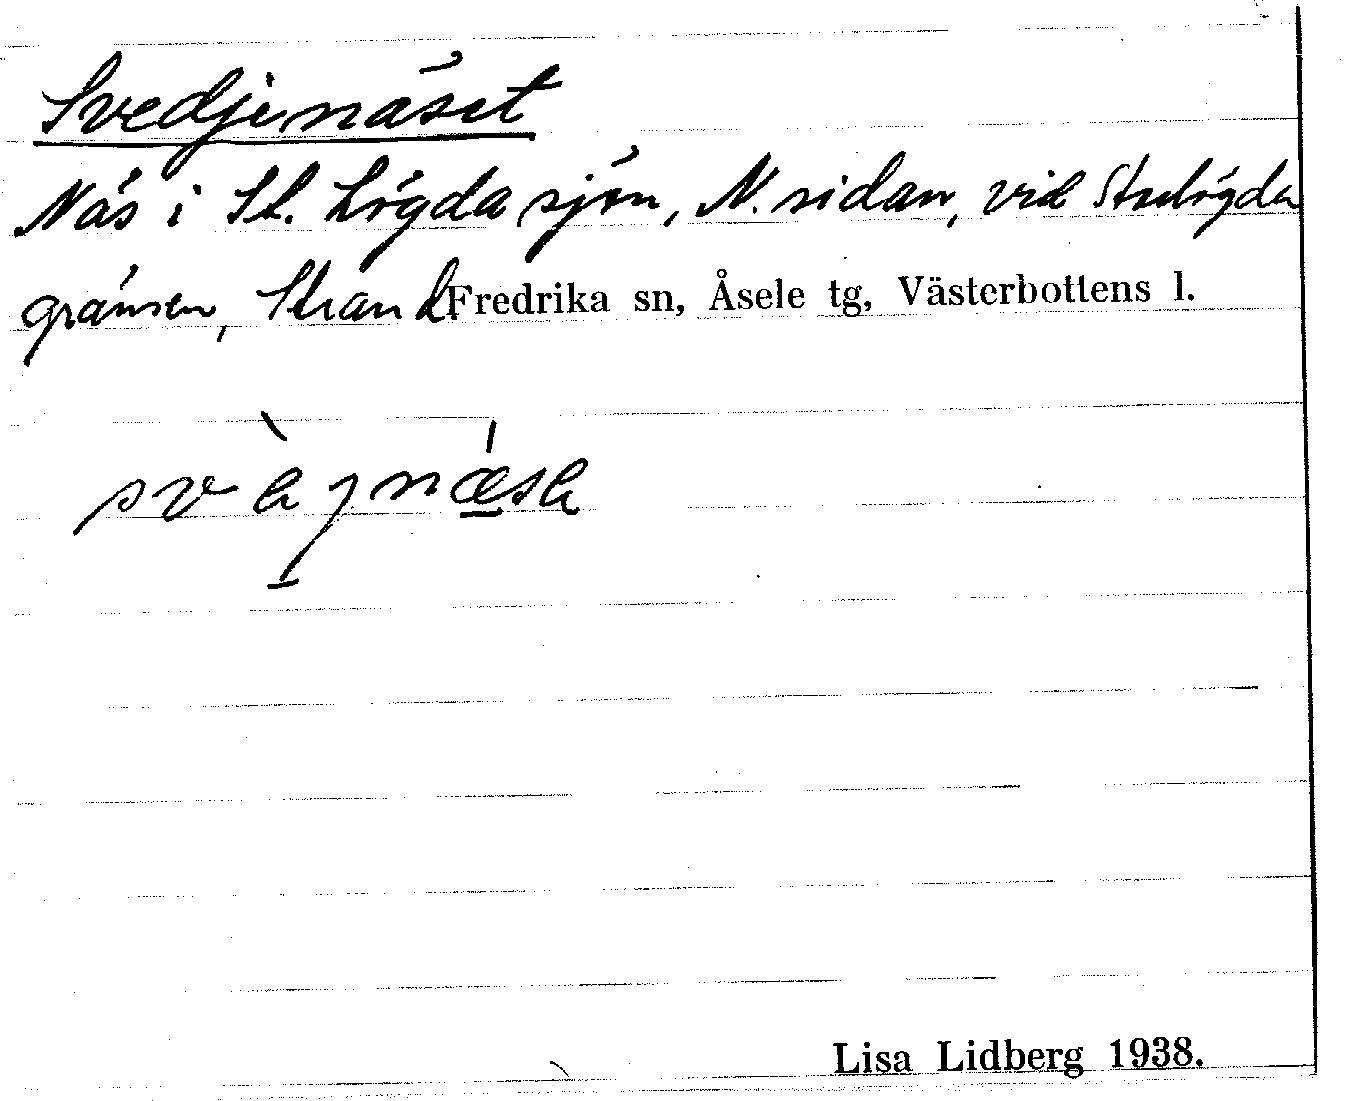 Svedjenäset
Näs i St. Lögdasjön, N. sidan, vid Storlögda
gränsen, Strand Fredrika sn, Åsele tg, Västerbottens l.
Lisa Lidberg 1938.